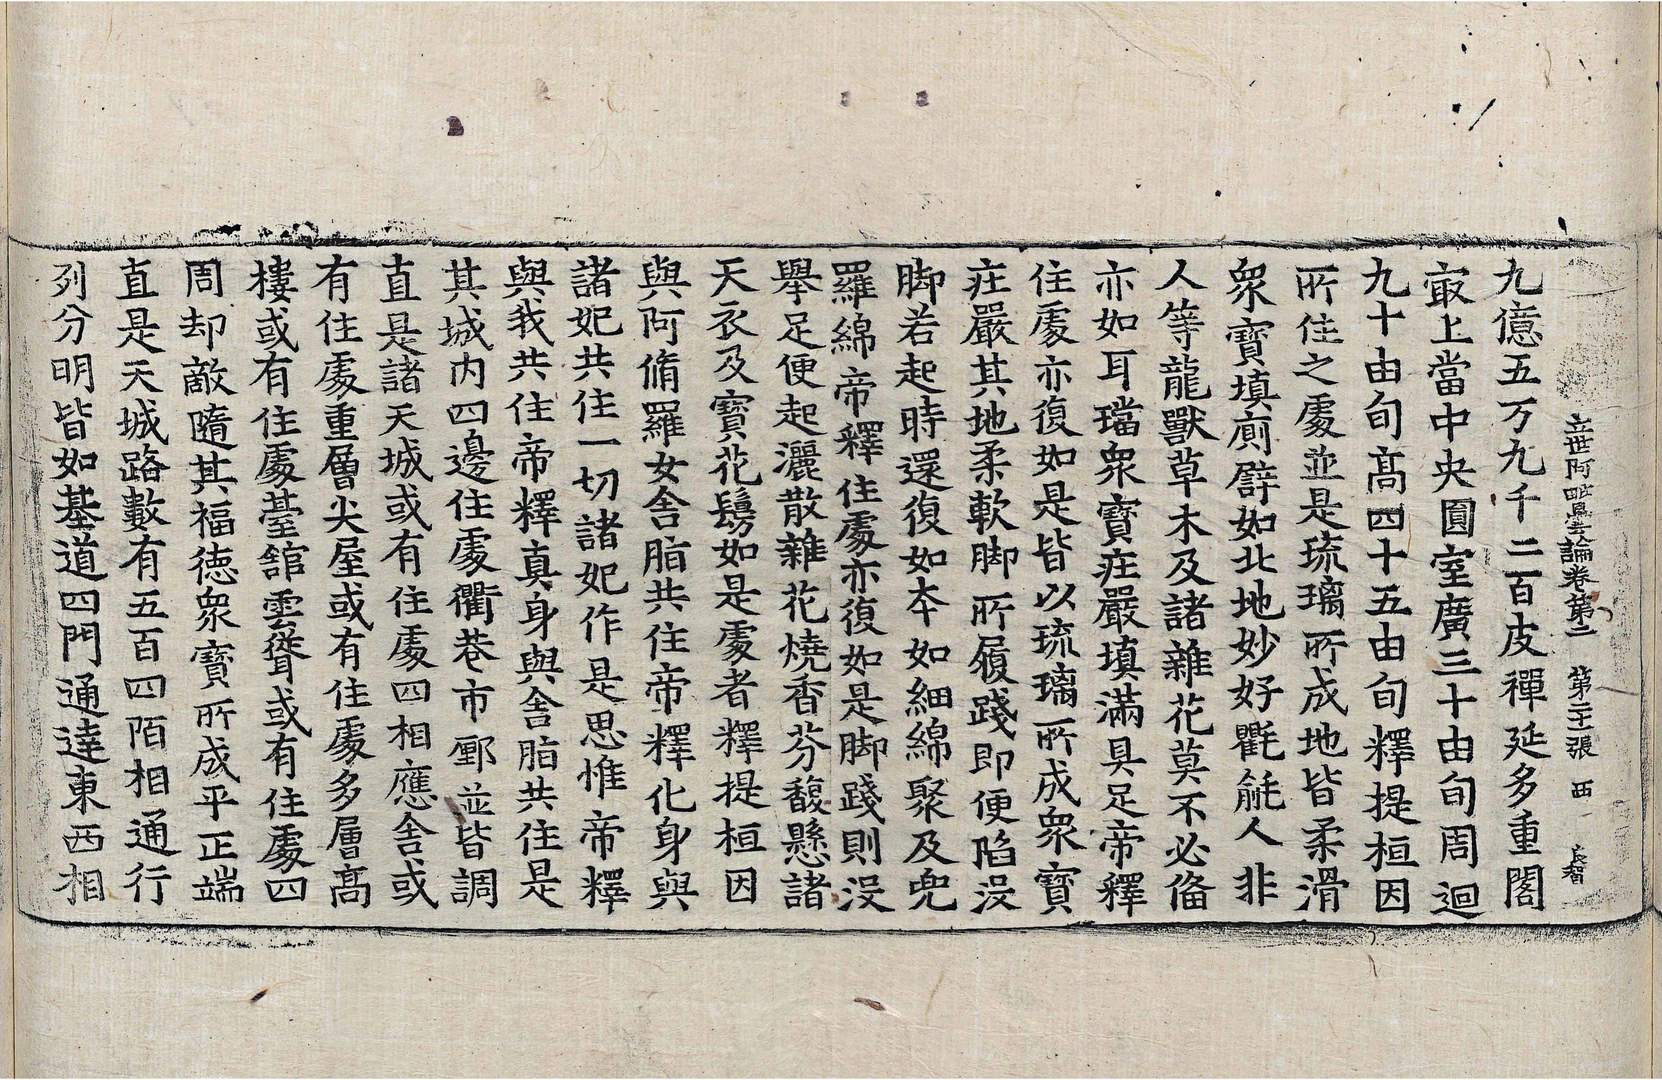 立世阿毗曇論卷第二 第二十二張 西
九億五万九千二百皮禪延多重閣
㝡上當中央圓室廣三十由旬周迴
九十由旬髙四十五由旬釋提桓因
所住之處並是琉璃所成地皆柔滑
衆寶填廁譬如北地妙好氍毹人非
人等龍獸草木及諸雜花莫不必俻
亦如耳璫衆寶疘嚴填滿具足帝釋
住處亦復如是皆以琉璃所成衆寶
疘嚴其地柔軟脚所履踐即便陷没
脚若起時還復如本如細綿聚及兜
羅綿帝釋住處亦復如是脚踐則没
舉足便起灑散雜花燒香芬馥懸諸
天衣及寶花鬘如是處者釋提桓因
與阿脩羅女舎脂共住帝釋化身與
諸妃共住一切諸妃作是思惟帝釋
與我共住帝釋真身與舎脂共住是
其城内四邊住處衢巷市鄽並皆調
直是諸天城或有住處四相應舎或
有住處重層尖屋或有住處多層髙
樓或有住處臺舘雲聳或有住處四
周却敵隨其福徳衆寶所成平正端
直是天城路數有五百四陌相通行
列分明皆如基道四門通達東西相